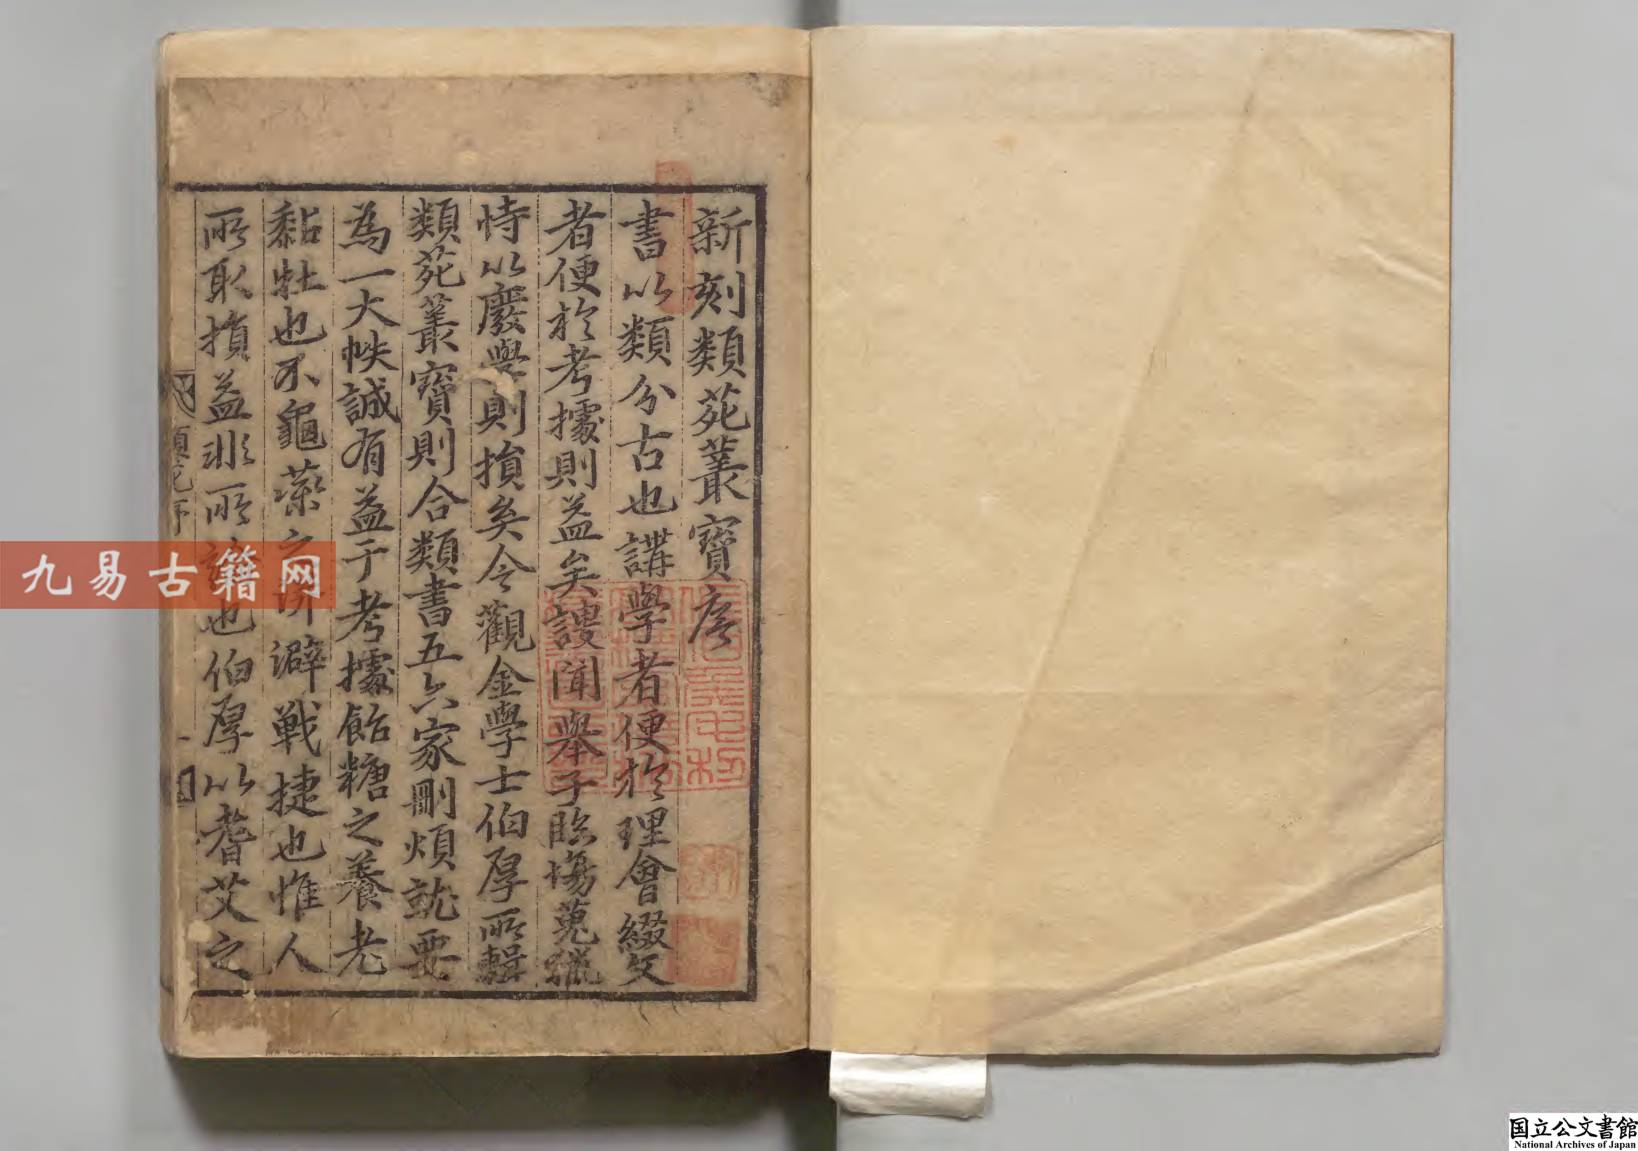 新刻類苑叢寶序
書以類分古也講學者便於理會綴文
者便於考據則益矣謏聞舉子臨場蒐獵
恃以廢學則損矣今觀金學士伯厚所輯
類苑叢寶則合類書五六家刪煩就要
為一大帙誠有益于考據飴糖之養老
黏牡也不龜藥之洴澼戰捷也惟人
所取損益非所論也伯厚以耆艾之
類苑序
一
九易古籍网
国立公文書館
National Archives of Japan